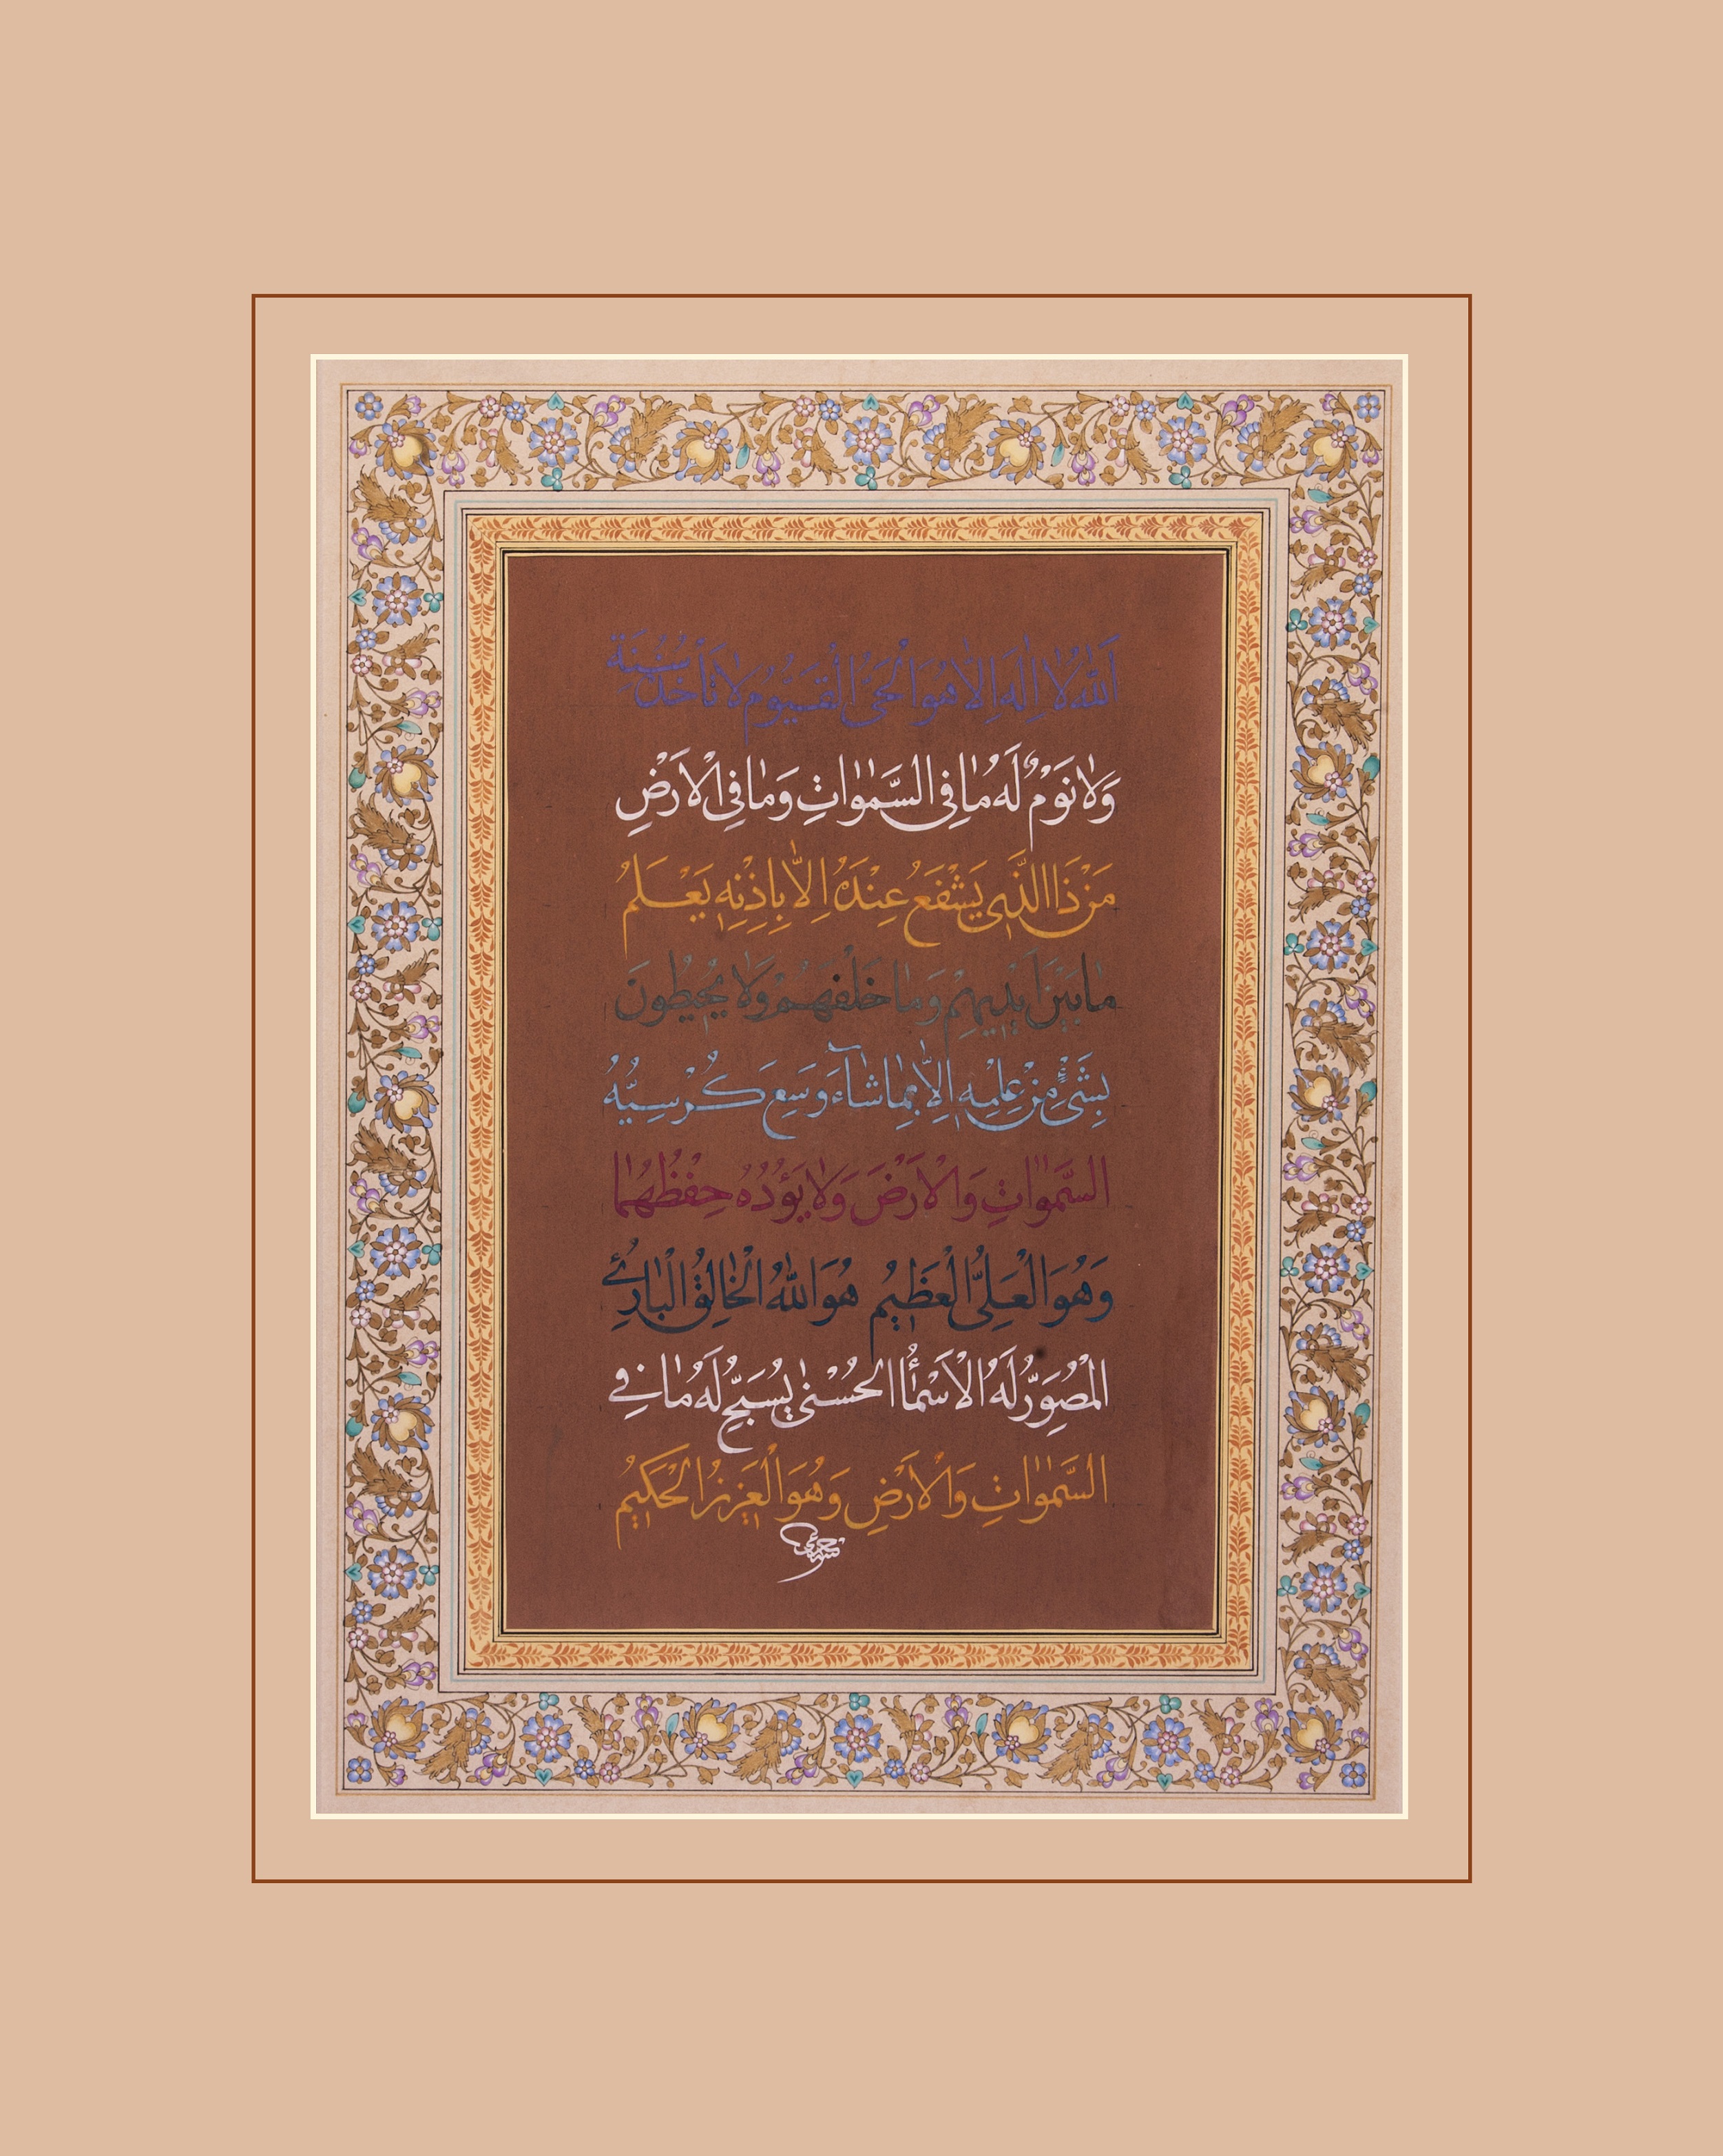 اَللّٰهُ لٰا اِلٰهَ اِلّٰا هُوَ الْحَیُّ الْقَیُّومُ لٰا تَأْخُذُهُ سِنَةٌ
وَلٰا نَوْمٌ لَهُ مٰا فِی السَّمٰوٰاتِ وَمٰا فِی الْاَرْضِ
مَنْ ذَا الَّذٖی یَشْفَعُ عِنْدَهُ اِلّٰا بِاِذْنِهٖ یَعْلَمُ
مٰا بَیْنَ اَیْدٖیهِمْ وَمٰا خَلْفَهُمْ وَلٰا یُحٖیطُونَ
بِشَیْءٍ مِنْ عِلْمِهٖ اِلّٰا بِمٰا شٰآءَ وَسِعَ كُرْسِیُّهُ
السَّمٰوٰاتِ وَالْاَرْضَ وَلٰا یَؤُدُهُ حِفْظُهُمٰا
وَهُوَ الْعَلِیُّ الْعَظٖیمُ هُوَ اللّٰهُ الْخٰالِقُ الْبٰارِئُ
الْمُصَوِّرُ لَهُ الْاَسْمٰأُ الْحُسْنٰی یُسَبِّحُ لَهُ مٰا فِی
السَّمٰوٰاتِ وَالْاَرْضِ وَهُوَ الْعَزٖیزُ الْحَكٖیمُ